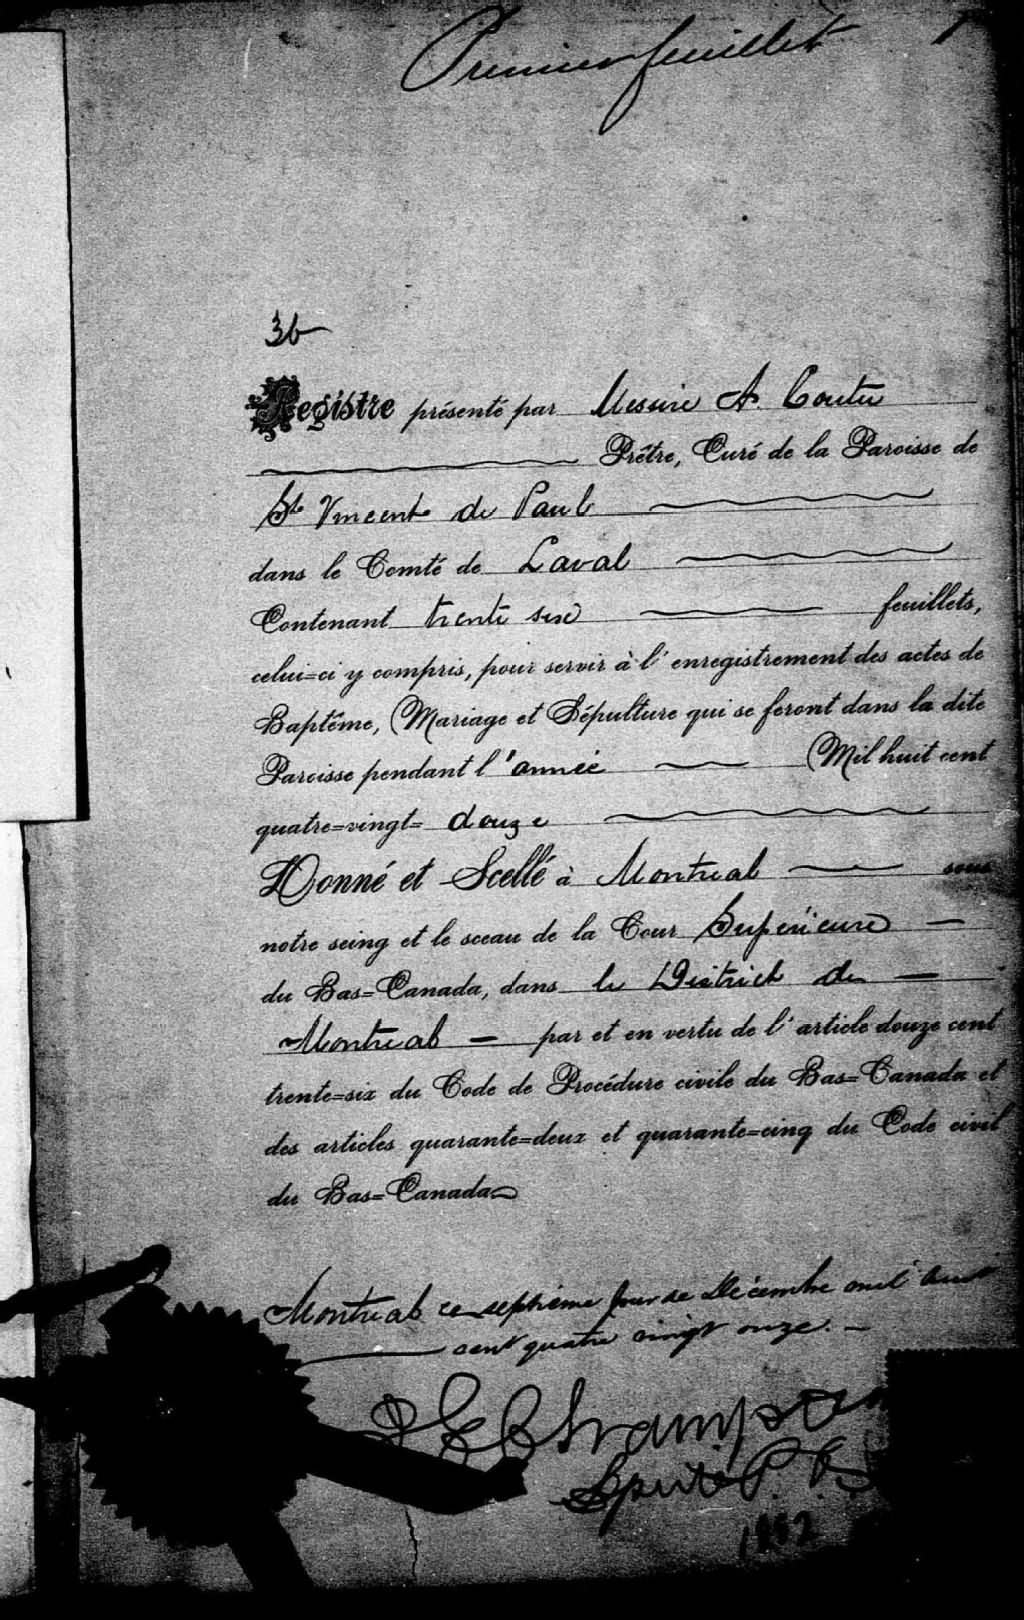 Premier feuillet 1
36
Registre présenté par Messire A. Coutu
Prêtre, Curé de la Paroisse de
St Vincent de Paul
dans le Comté de Laval
Contenant trente six feuillets,
celui=ci y compris, pour servir à l'enregistrement des actes de
Baptême, Mariage et Sépulture qui se feront dans la dite
Paroisse pendant l'année Mil huit cent
quatre=vingt= douze
Donné et Scellé à Montreal sous
notre seing et le sceau de la Cour Supérieure
du Bas=Canada, dans le District de
Montreal par et en vertu de l'article douze cent
trente=six du Code de Procédure civile du Bas=Canada et
des articles quarante=deux et quarante=cinq du Code civil
du Bas=Canada
Montreal ce septième jour de Décembre mil huit
cent quatre vingt onze.
Champ
P.
1892